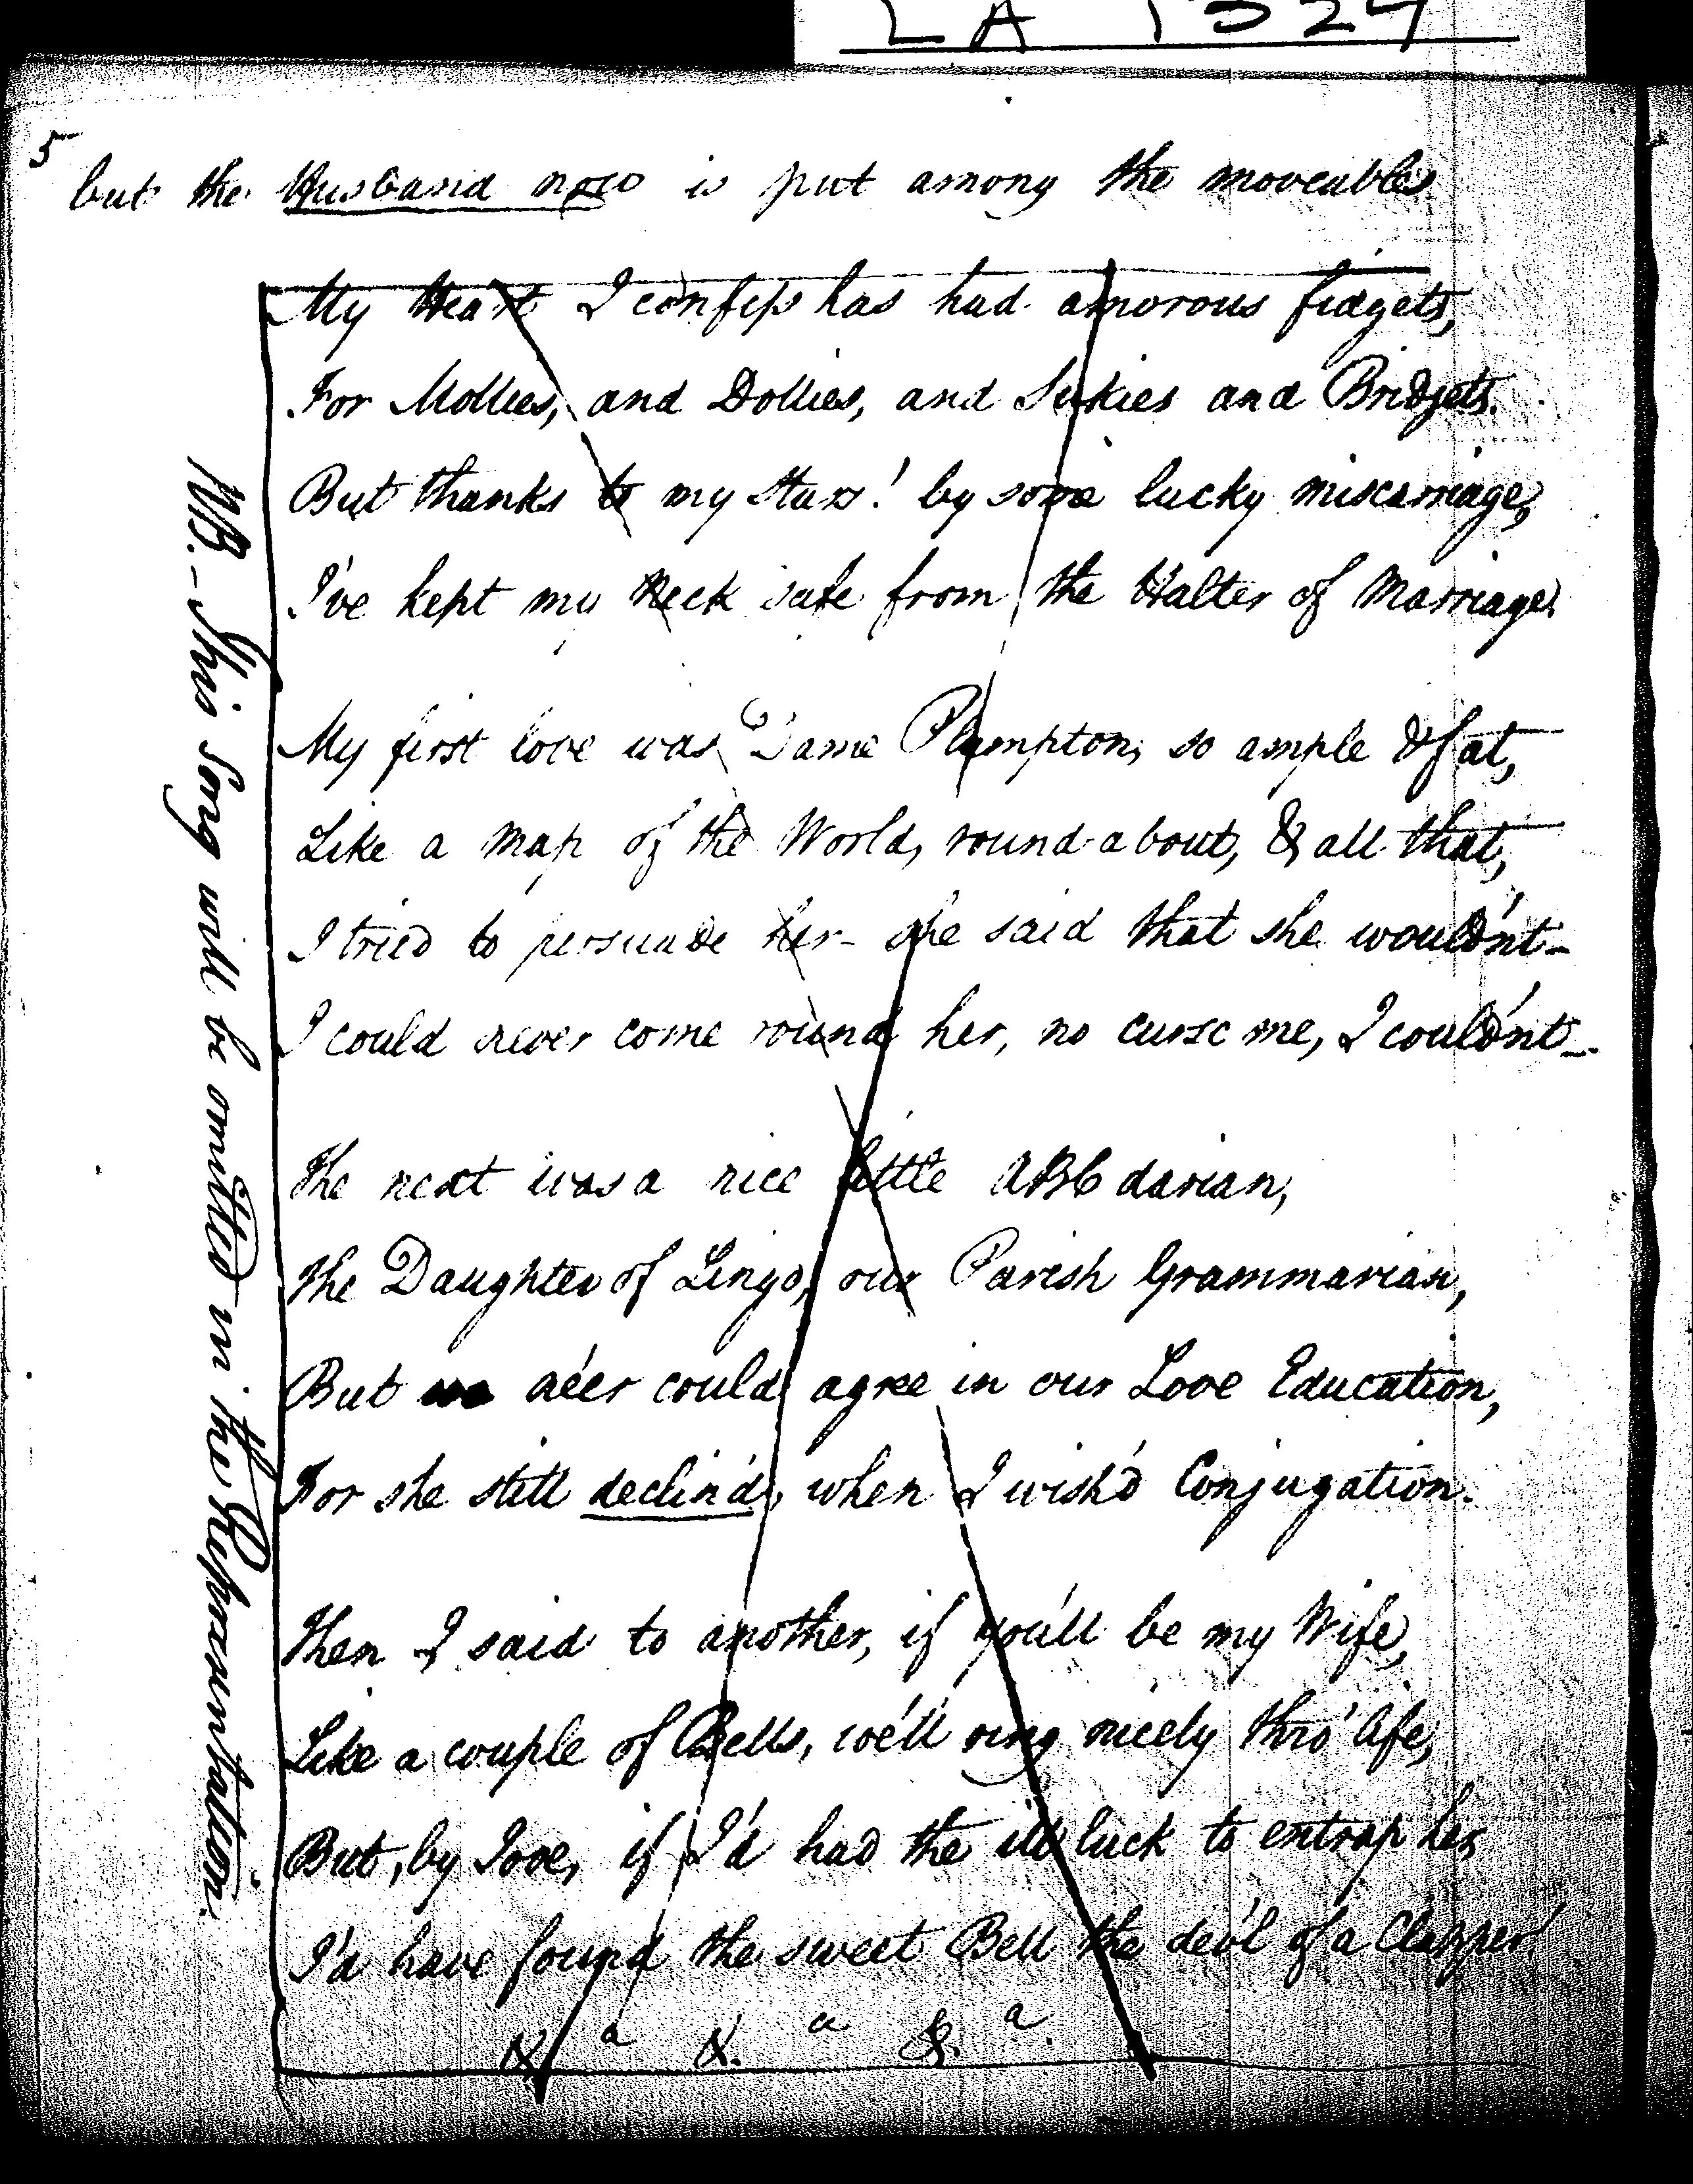 LA 1324
5
but the Husband now is put among the moveables
My Heart I confess has had amorous fidgets,
For Mollies, and Dollies, and Sukies and Bridgets.
But thanks to my Stars! by some lucky miscarriage,
I've kept my Neck safe from the Halter of Marriage.
My first love was Dame Plumpton, so ample & fat,
Like a Map of the World, round about, & all that,
I tried to persuade her - she said that she would'nt -
I could never come round her, no curse me, I could'nt -
The next was a nice little ABC darian,
The Daughter of Lingo, our Parish Grammarian,
But ne'er could agree in our Love Education,
For she still declin'd, when I wish'd Conjugation.
Then I said to another, if you'll be my Wife,
Like a couple of Bells, we'll ring nicely thro' life,
But, by Jove, if I'd had the ill luck to entrap her,
I'd have found the sweet Bell the dev'l of a Clapper!
&.a &.a &.a
NB. - This Song will be omitted in the Representation.